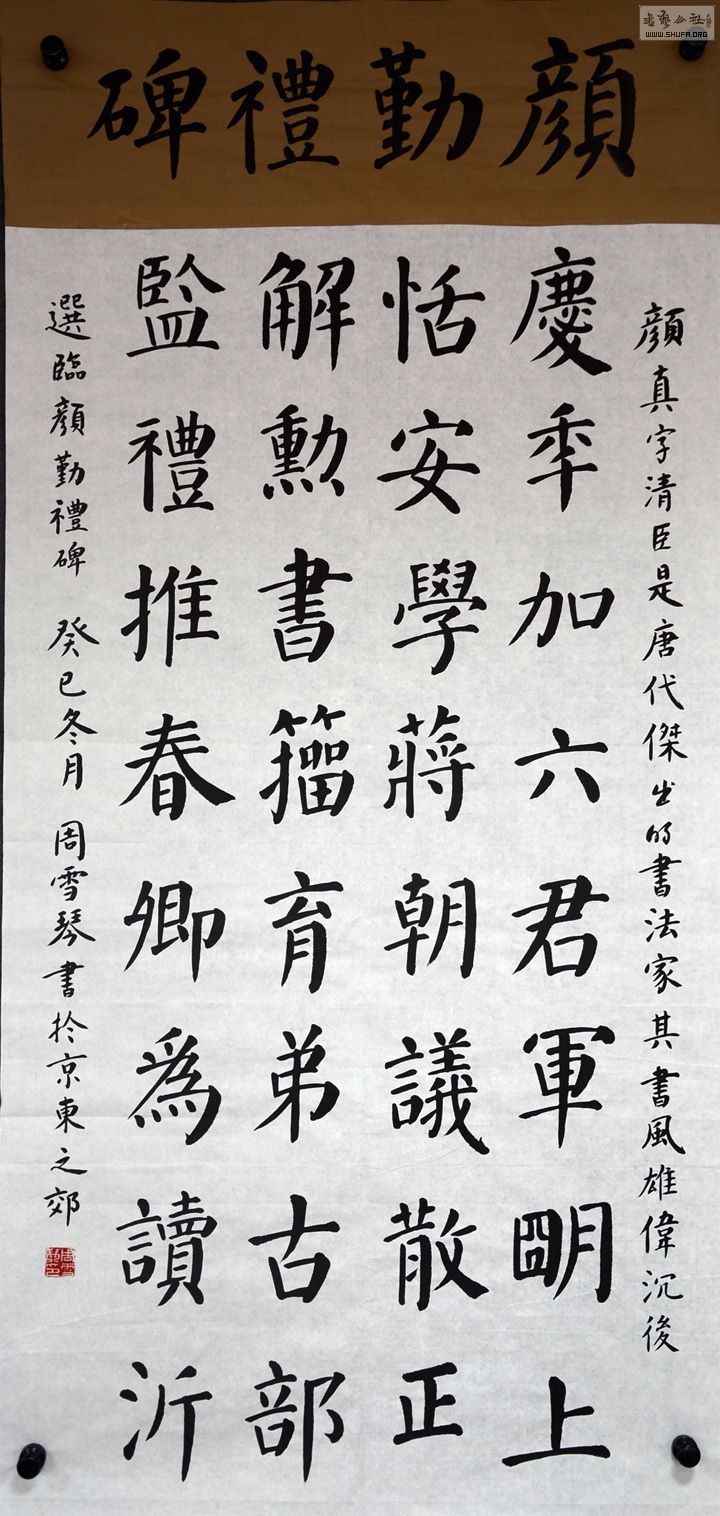 顏勤禮碑
顔真字清臣是唐代傑出的書法家其書風雄偉沉後
慶年加六君軍明上
恬安學蔣朝議散正
解勲書籀育弟古部
監禮推春卿為讀沂
選臨顏勤禮碑 癸巳冬月 周雪琴書於京東之郊
WWW.SHUFA.ORG